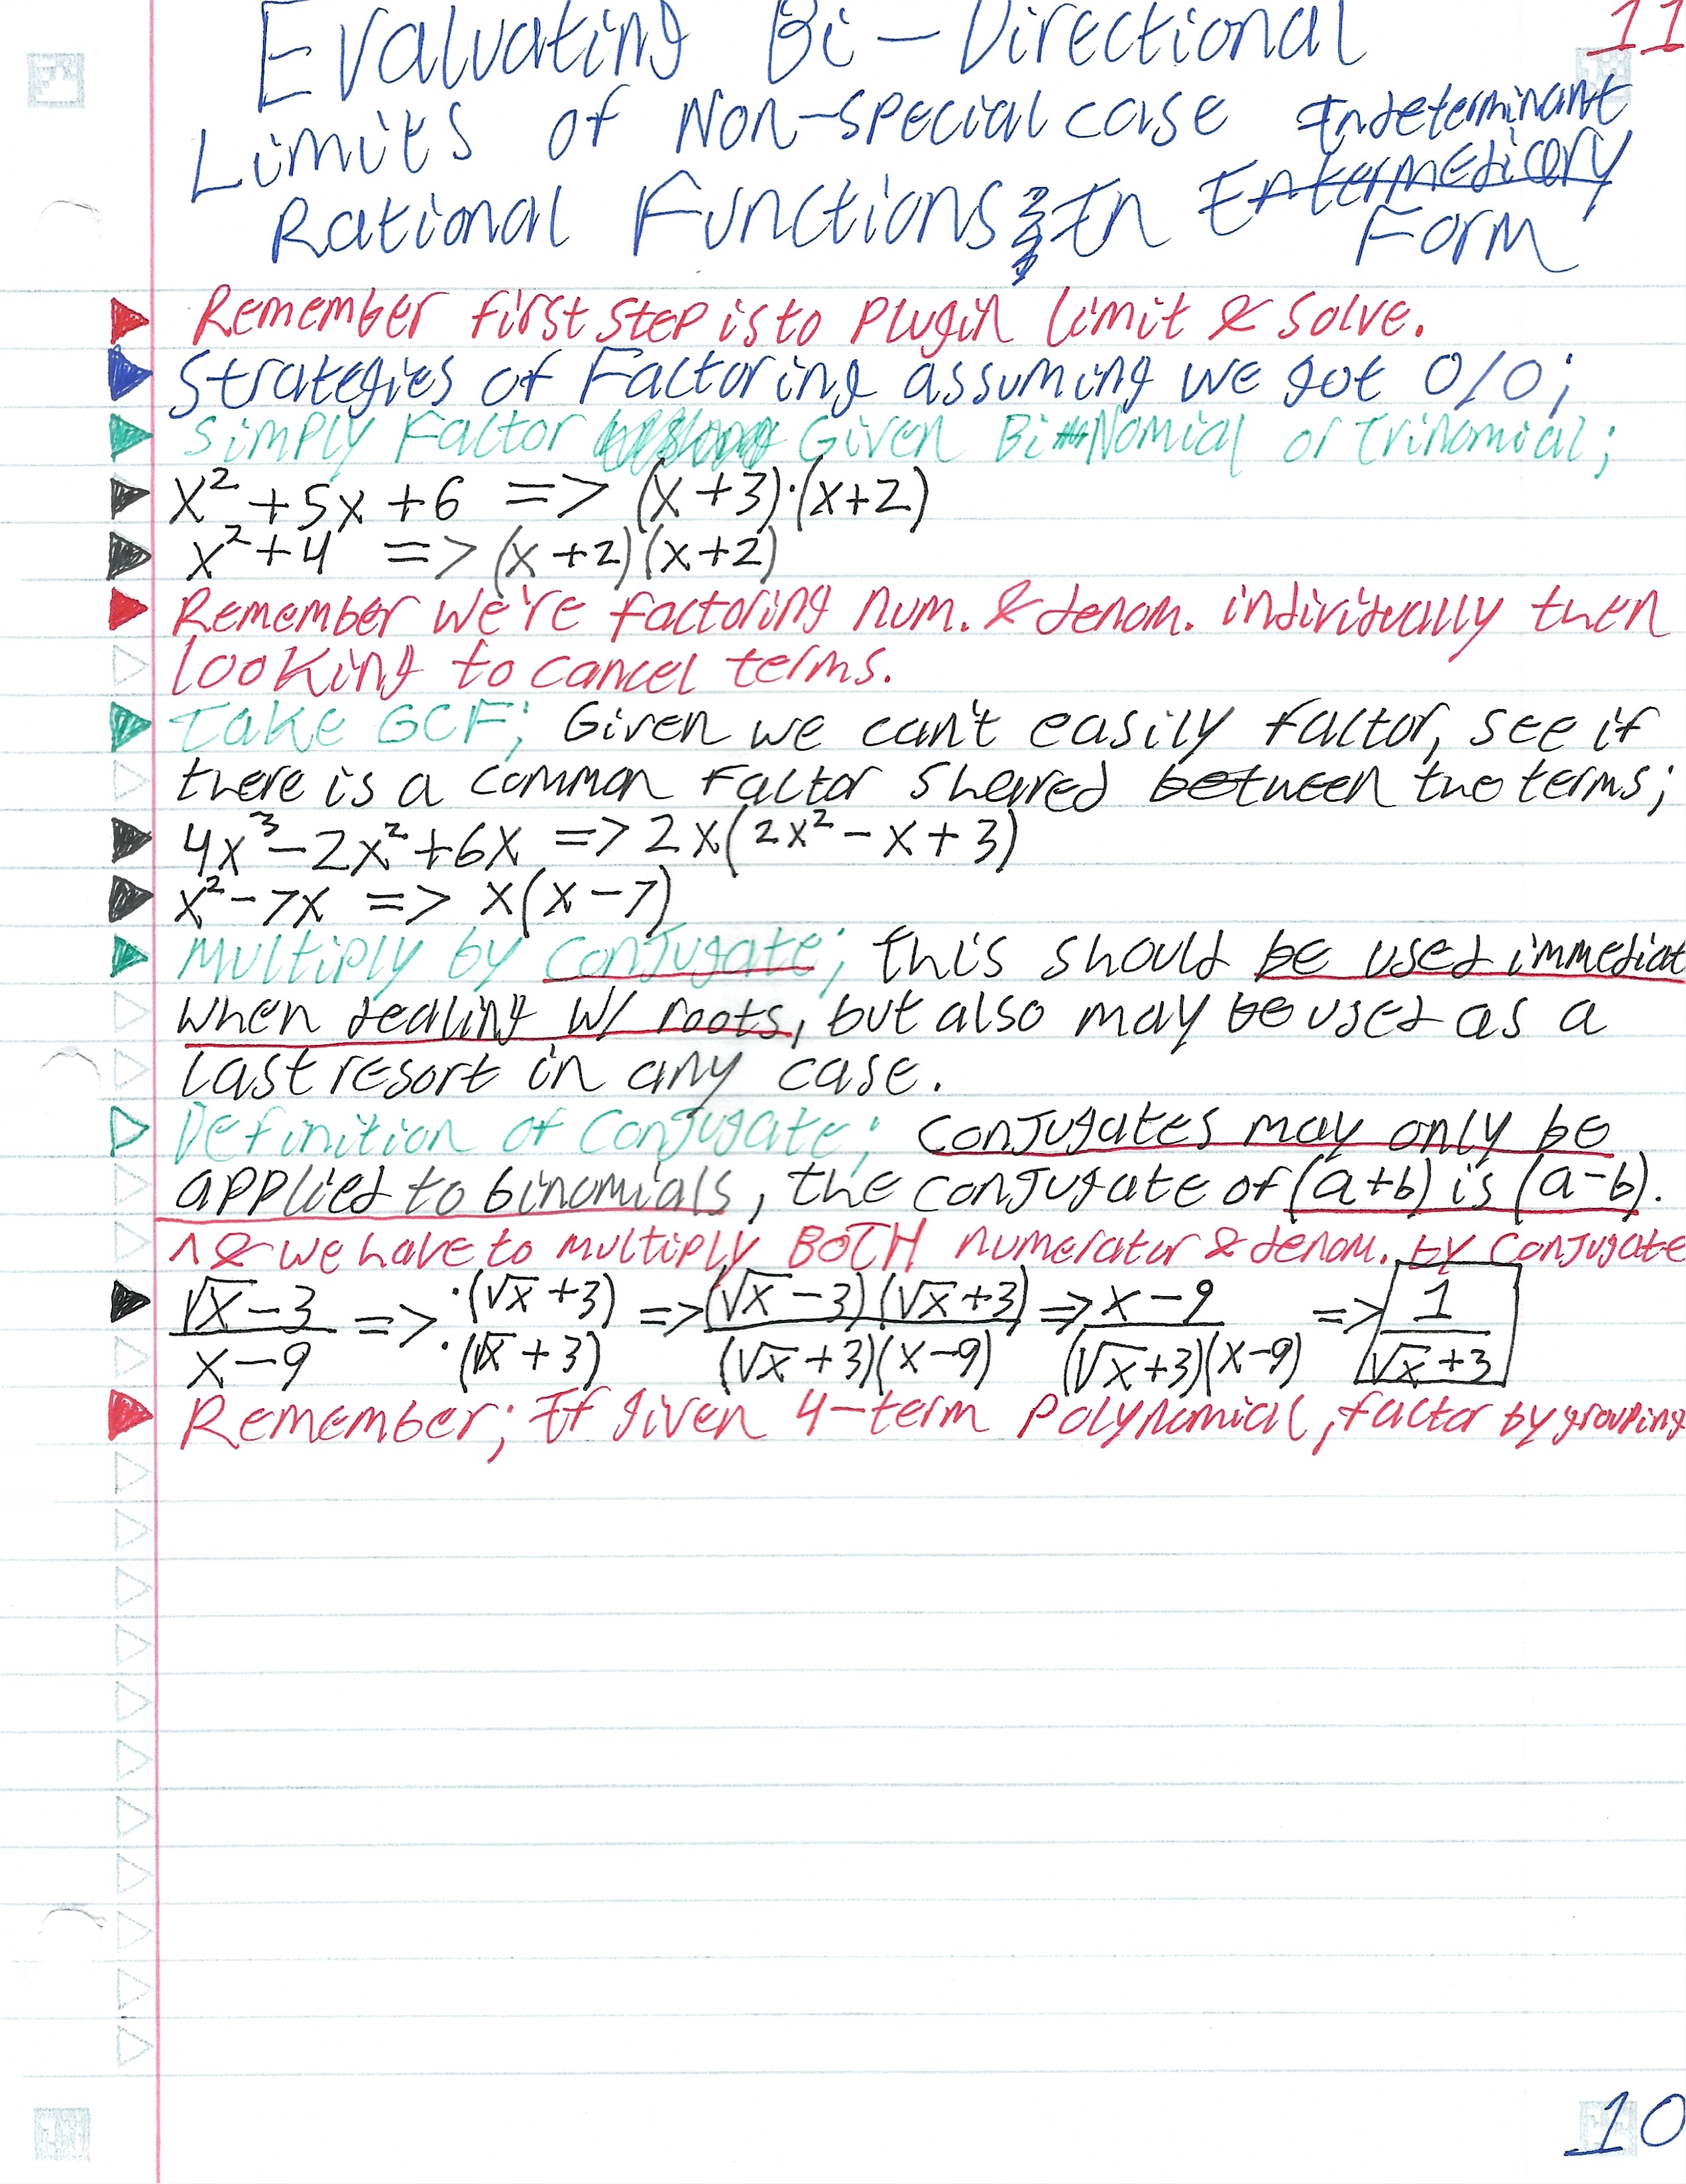 11
Evaluating Bi-Directional
Limits of Non-special case Indeterminant
Rational Functions In Entermediary
Form
Remember first step is to plugin limit & solve.
Strategies of Factoring assuming we got 0/0;
Simply Factor Given BiNomial or Trinomial;
x² + 5x + 6 => (x+3)·(x+2)
x² + 4 => (x+2)(x+2)
Remember we're factoring num. & denom. individually then
looking to cancel terms.
Take GCF; Given we can't easily factor, see if
there is a common factor shared between the terms;
4x³ - 2x² + 6x => 2x(2x² - x + 3)
x² - 7x => x(x - 7)
Multiply by Conjugate; this should be used immediat
when dealing w/ roots, but also may be used as a
last resort in any case.
Definition of Conjugate; Conjugates may only be
applied to binomials, the conjugate of (a+b) is (a-b).
^ & we have to multiply BOTH numerator & denom. by conjugate
√x - 3 / x - 9 => ·(√x + 3) / ·(√x + 3) => (√x - 3)(√x + 3) / (√x + 3)(x - 9) => x - 9 / (√x + 3)(x - 9) => 1 / √x + 3
Remember; If given 4-term polynomial, factor by grouping
10